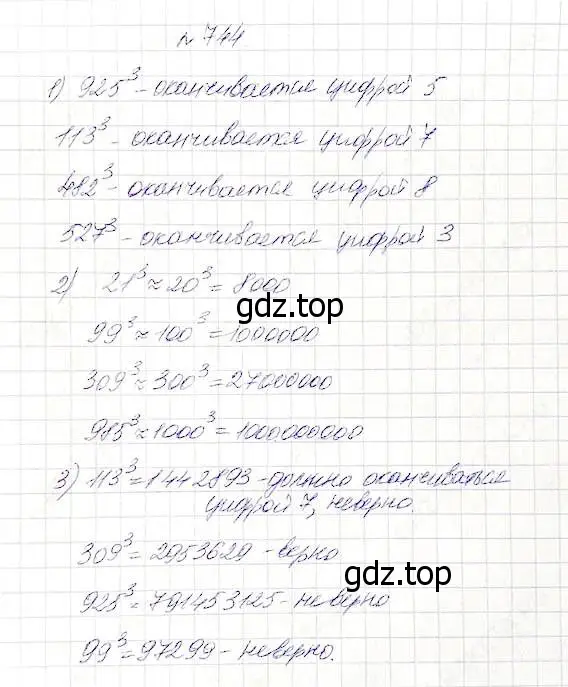 № 744
1) 925³ - оканчивается цифрой 5
113³ - оканчивается цифрой 7
482³ - оканчивается цифрой 8
527³ - оканчивается цифрой 3
2) 21³ ≈ 20³ = 8000
gdz.top
99³ ≈ 100³ = 1000000
309³ ≈ 300³ = 27000000
985³ ≈ 1000³ = 1000000000
3) 113³ = 1442893 - должно оканчиваться
цифрой 7, неверно.
309³ = 2953629 - верно
gdz.top
925³ = 791453125 - неверно
99³ = 97299 - неверно.